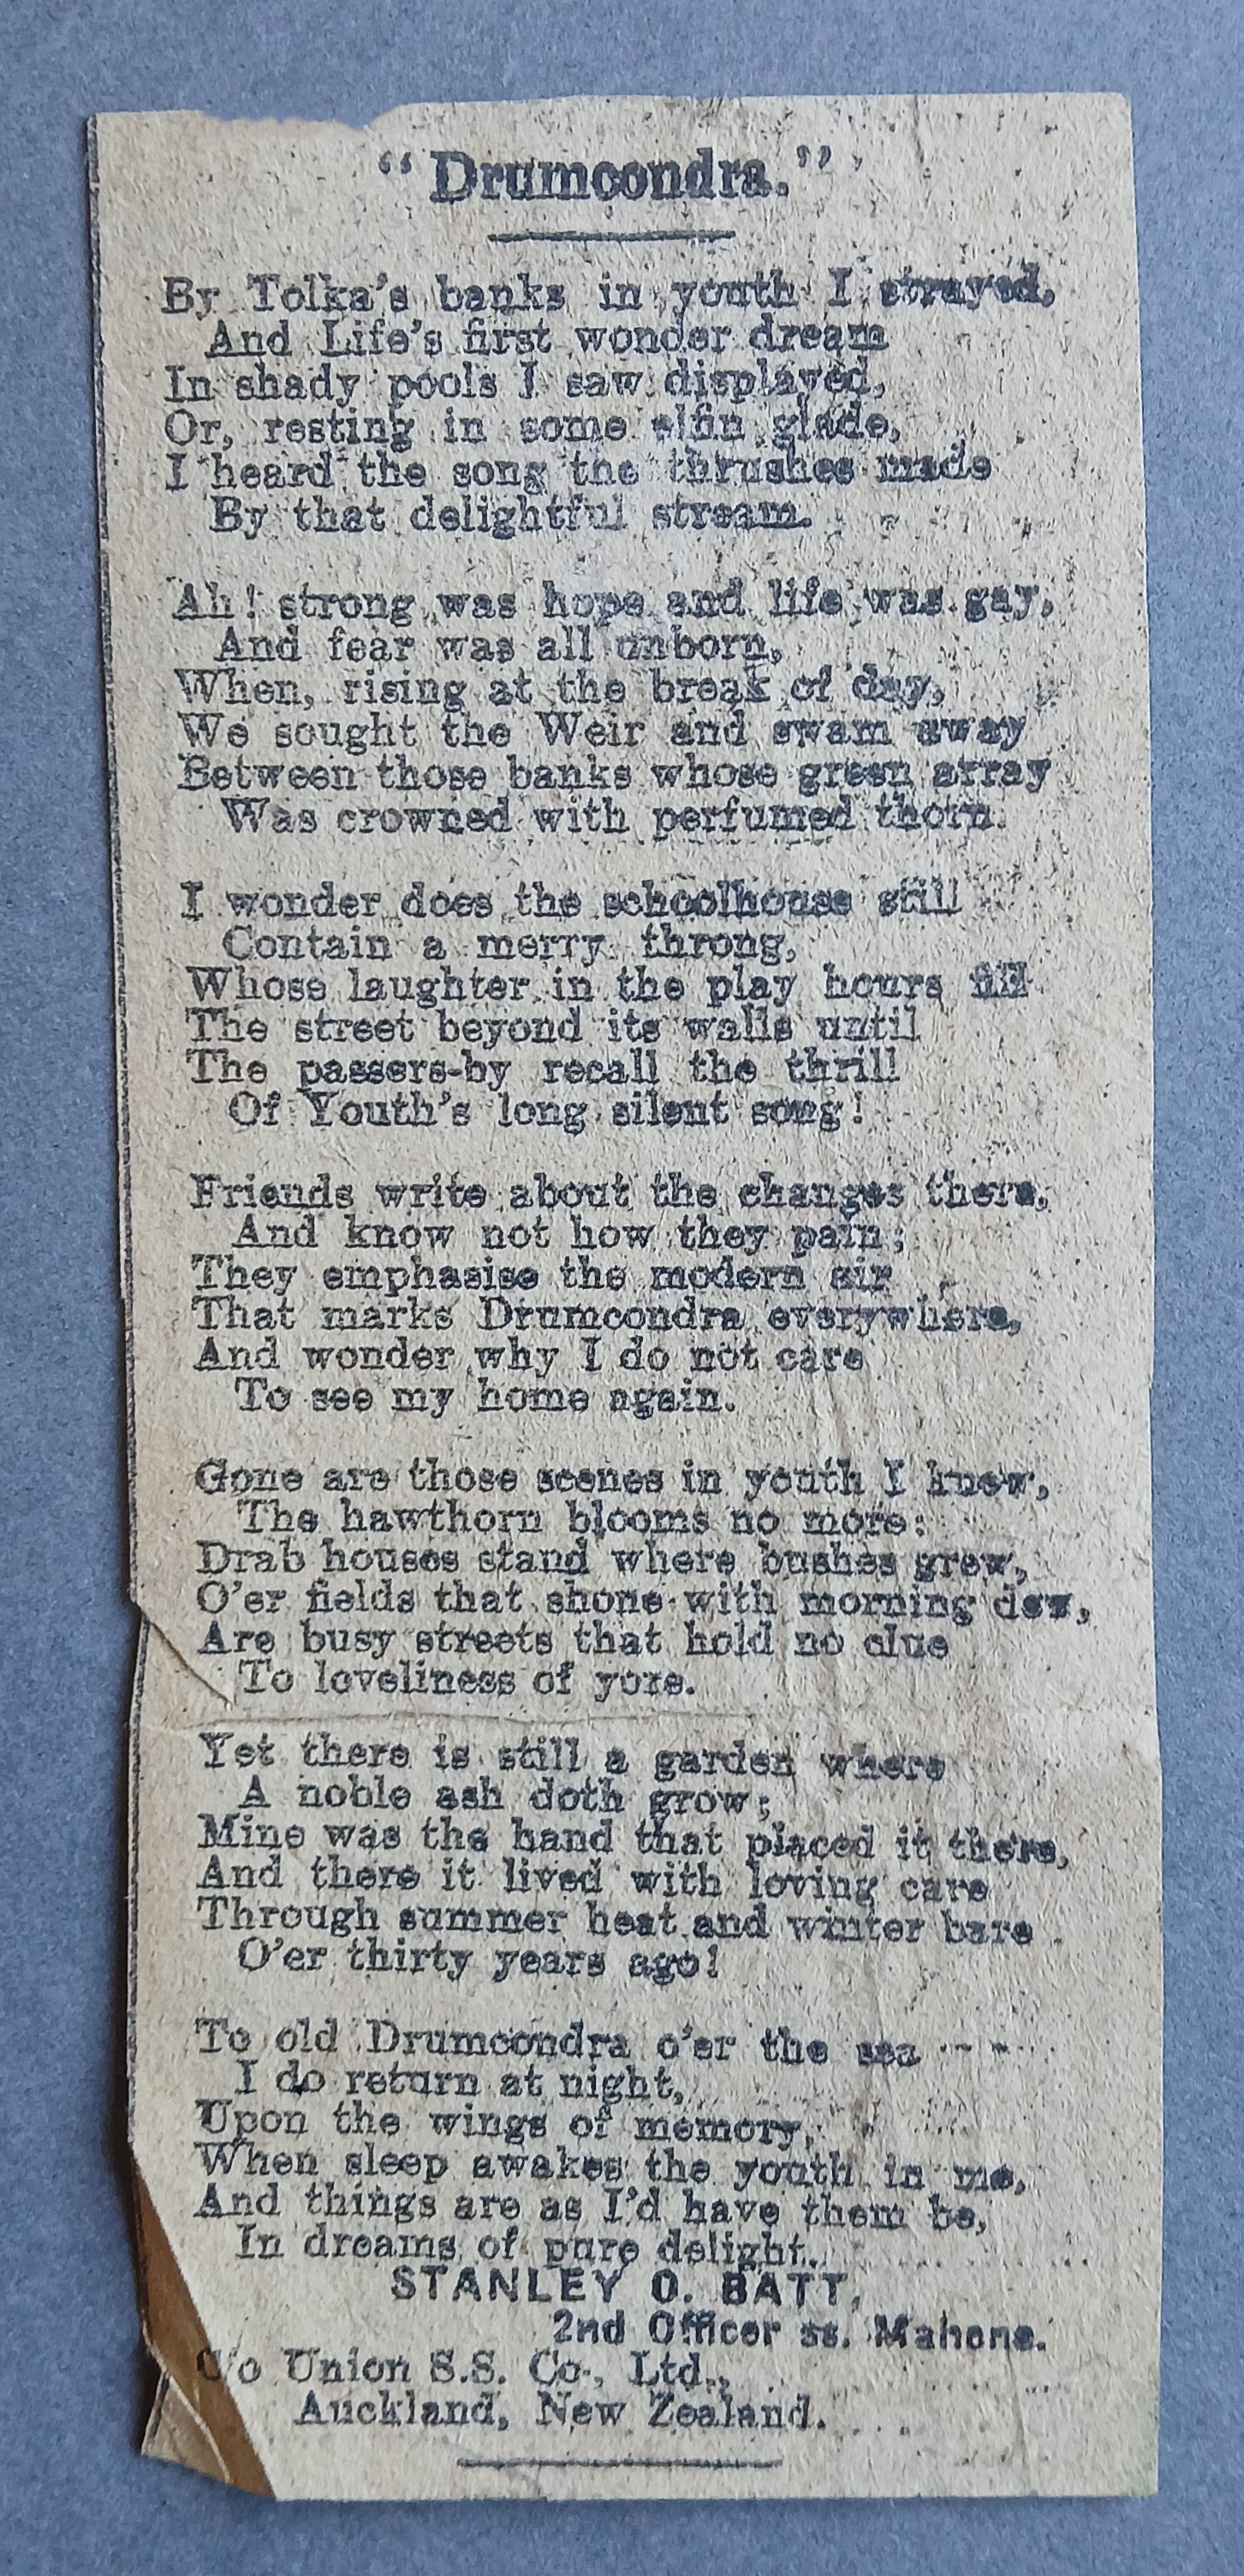 “Drumcondra.”
By Tolka's banks in youth I strayed,
And Life's first wonder dream
In shady pools I saw displayed,
Or, resting in some elfin glade,
I heard the song the thrushes made
By that delightful stream.
Ah! strong was hope and life was gay,
And fear was all unborn,
When, rising at the break of day,
We sought the Weir and swam away
Between those banks whose green array
Was crowned with perfumed thorn.
I wonder does the schoolhouse still
Contain a merry throng,
Whose laughter in the play hours fill
The street beyond its walls until
The passers-by recall the thrill
Of Youth's long silent song!
Friends write about the changes there,
And know not how they pain;
They emphasise the modern air
That marks Drumcondra everywhere,
And wonder why I do not care
To see my home again.
Gone are those scenes in youth I knew,
The hawthorn blooms no more:
Drab houses stand where bushes grew,
O'er fields that shone with morning dew,
Are busy streets that hold no clue
To loveliness of yore.
Yet there is still a garden where
A noble ash doth grow;
Mine was the hand that placed it there,
And there it lived with loving care
Through summer heat and winter bare
O'er thirty years ago!
To old Drumcondra o'er the sea
I do return at night,
Upon the wings of memory,
When sleep awakes the youth in me,
And things are as I'd have them be,
In dreams of pure delight.
STANLEY O. BATT,
2nd Officer ss. Mahena.
C/o Union S.S. Co., Ltd.,
Auckland, New Zealand.